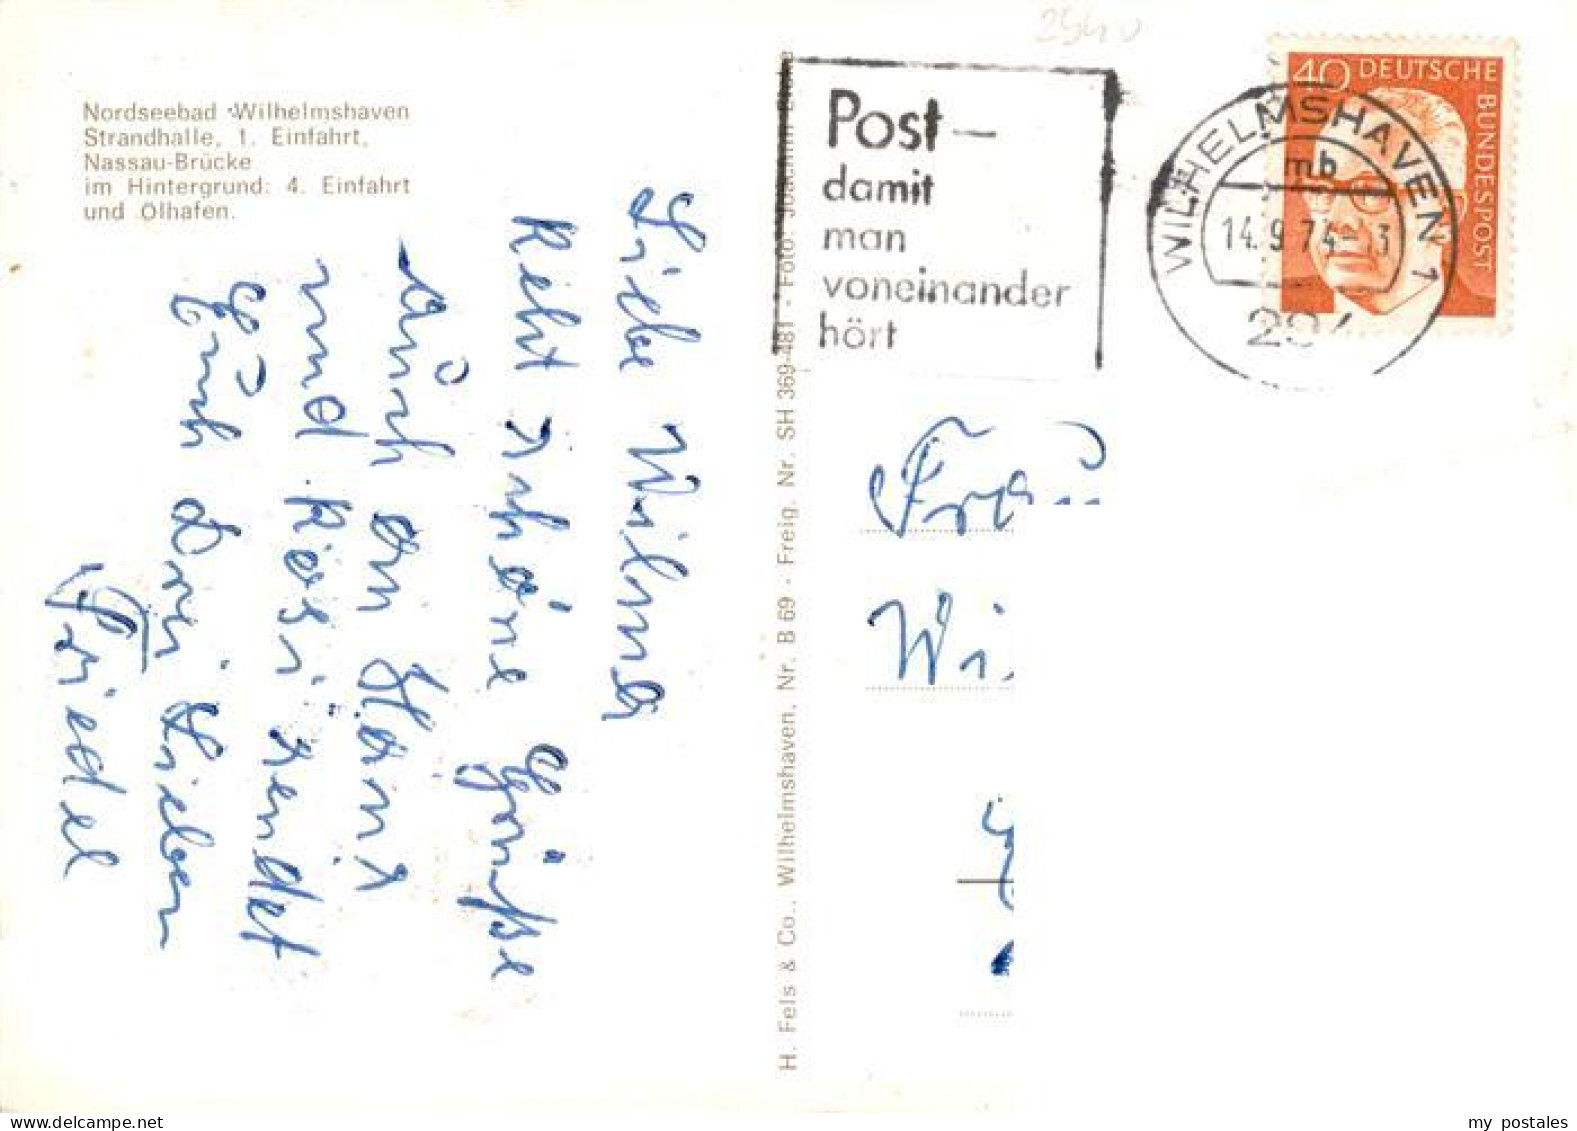 Nordseebad Wilhelmshaven
Strandhalle, 1. Einfahrt,
Nassau-Brücke
im Hintergrund: 4. Einfahrt
und Ölhafen.
Liebe Wilma
Recht schöne Grüße
Auch an Hans
und Rosi sendet
Euch drei Lieben
Friedel
H. Fels & Co., Wilhelmshaven, Nr. B 69 - Freig. Nr. SH 369-481 - Foto: Joachim
2940
Post –
damit
man
voneinander
hört
WILHELMSHAVEN 1
mb
14.9.74-13
294
40 DEUTSCHE BUNDESPOST
Frau
Wi
my postales